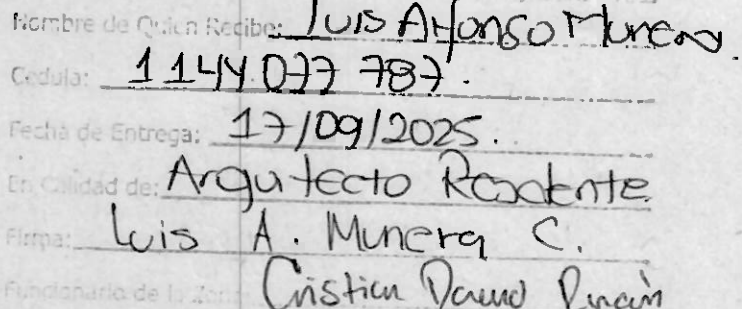 Nombre de Quien Recibe: Luis Alfonso Munera.
Cedula: 1144.077 787.
Fecha de Entrega: 17/09/2025.
En Calidad de: Arquitecto Residente
Firma: Luis A. Munera C.
Funcionario de la Zona Cristian David